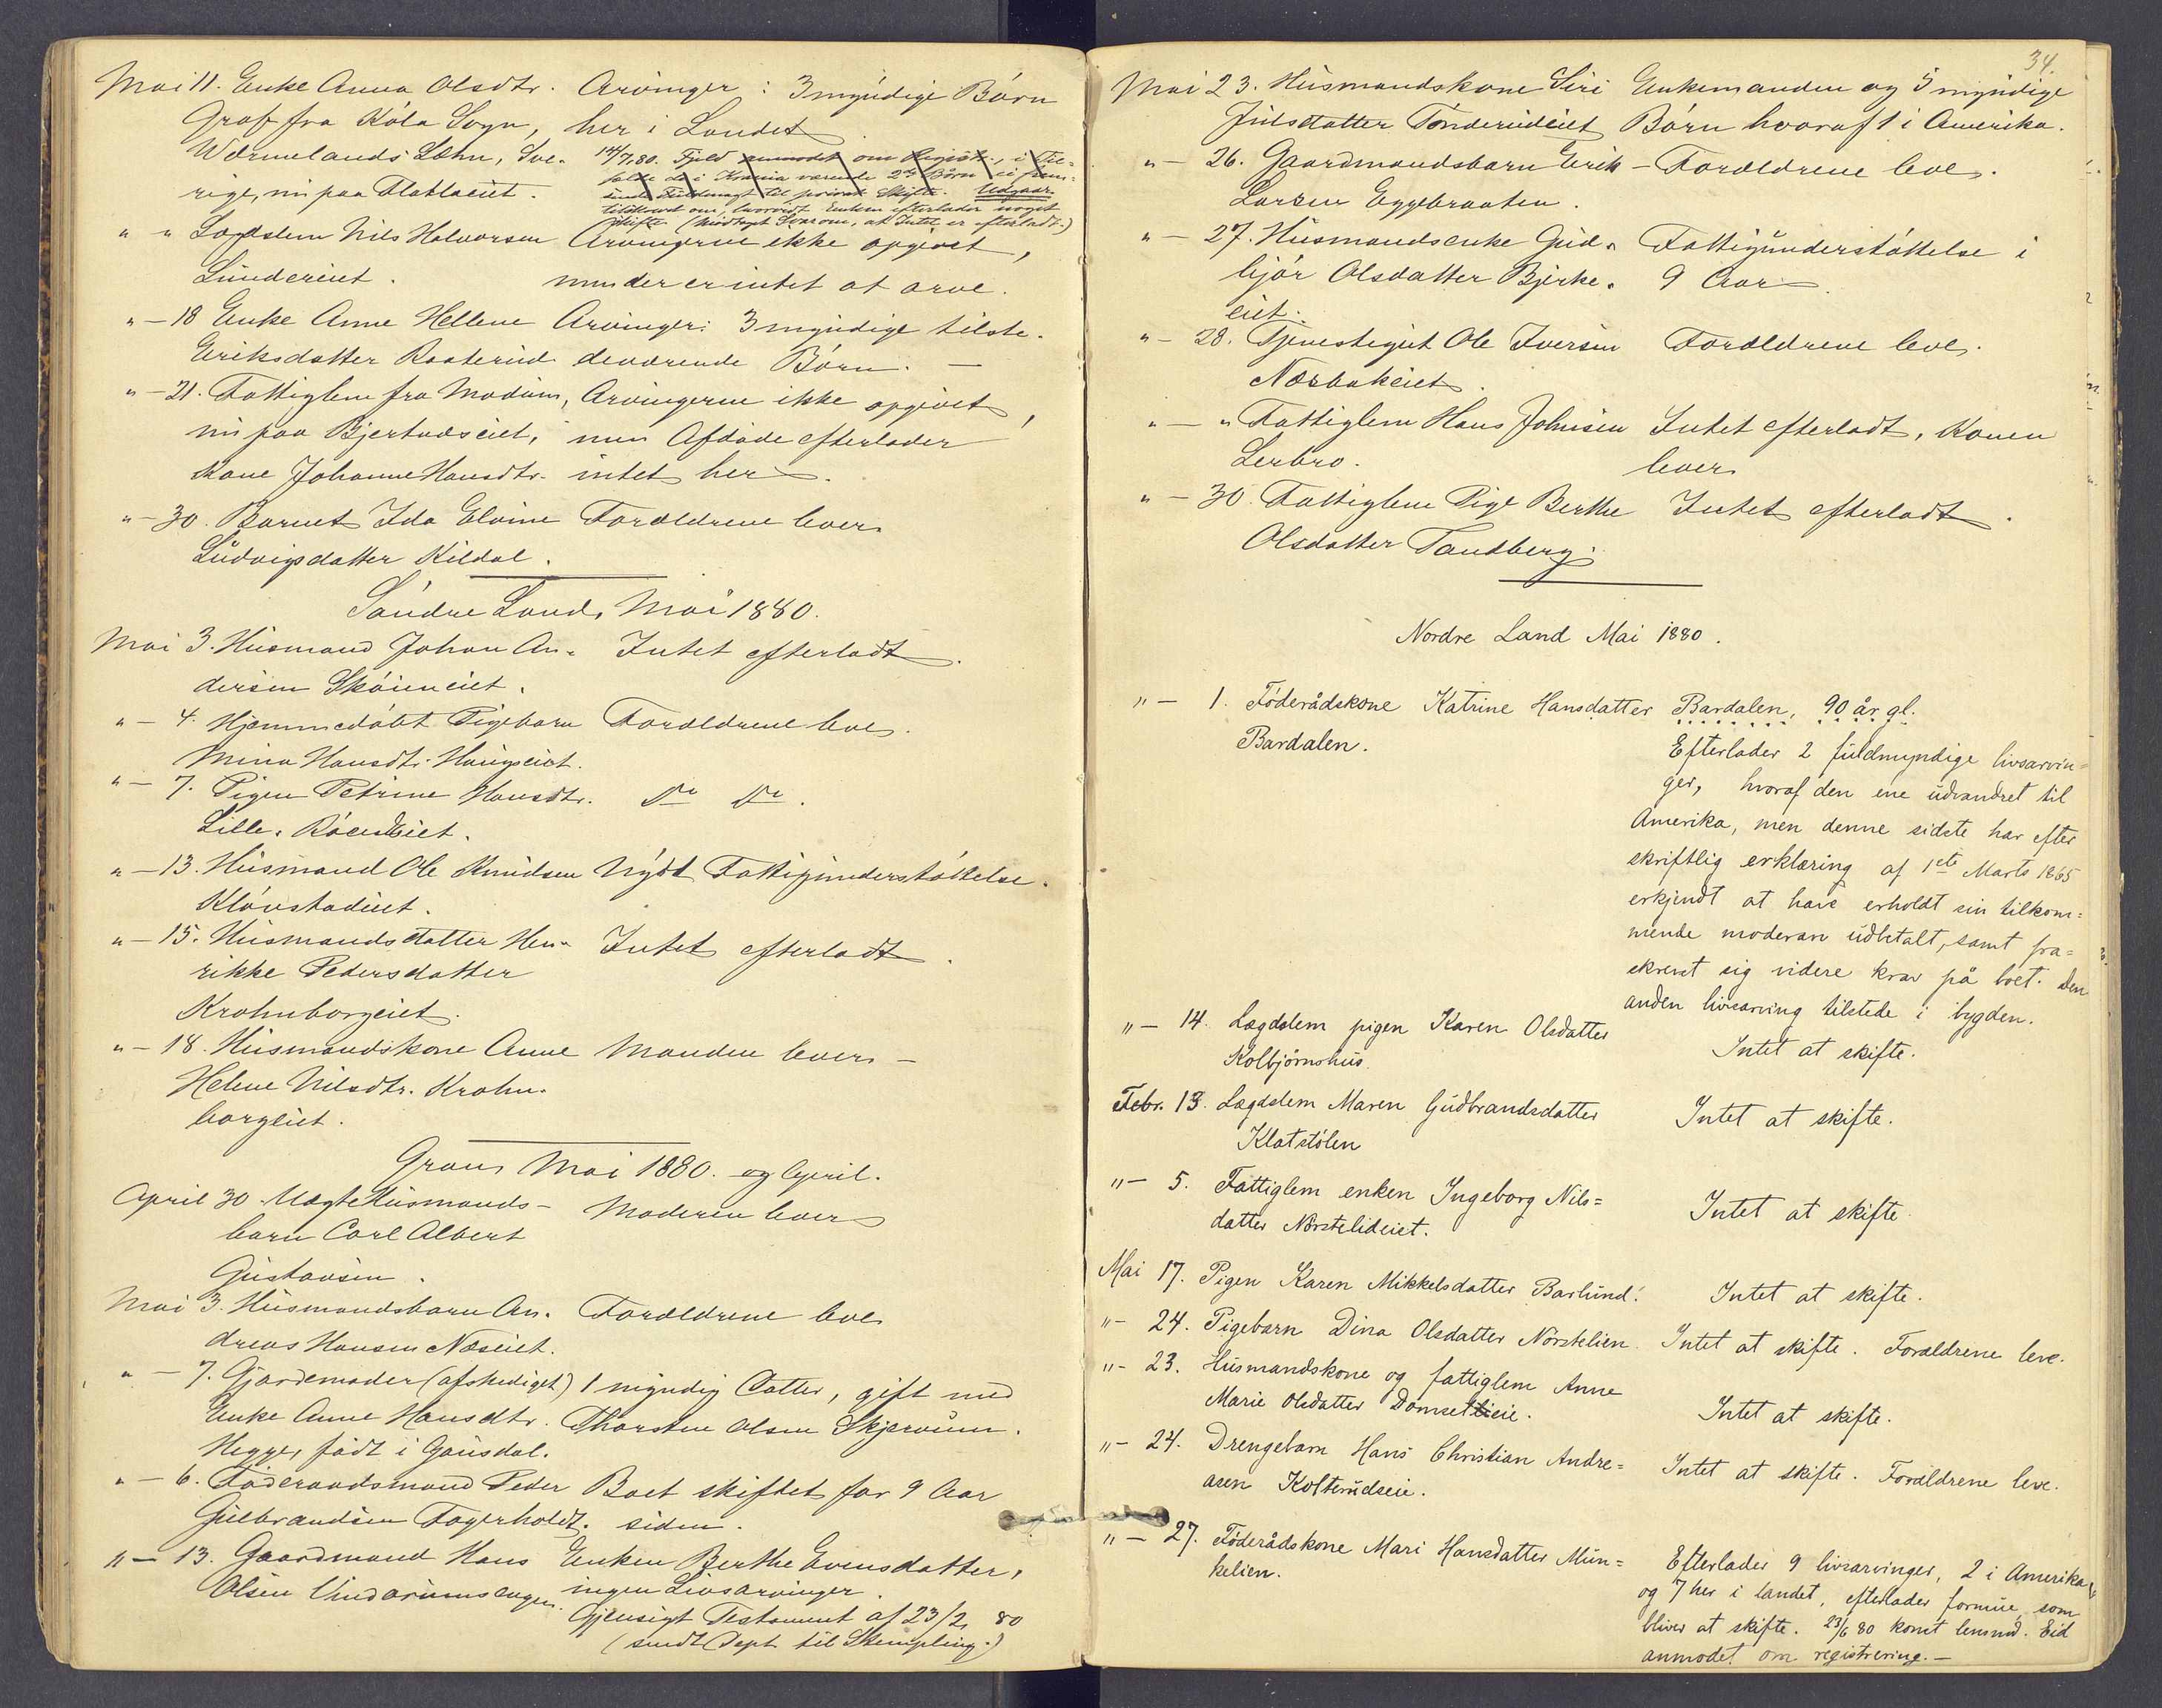 Mai 11. Enke Anna Olsdtr. Arvinger: 3 myndige Børn
Graf fra Køla Sogn, her i Landet
Wermelands Læhn, Sve-
14/7.80. Fjeld anmodet om Registr., i Til-
fælde de i Krania værende 2de Børn ei frem-
rige, nu paa Flatlaeiet.
sende Fuldmagt til privat Skifte. Udgaar.
tilskrevet om, hvorvidt Enken efterlader noget
Skifte (Modtaget Svar om, at Intet er efterladt.)
" " Lægdslem Nils Halvorsen Arvingerne ikke opgivet,
Lundereiet. men der er intet at arve.
" - 18 Enke Anne Hellene Arvinger: 3 myndige tilste-
Eriksdatter Raaterud deværende Børn. -
" - 21. Fattiglem fra Modum, Arvingerne ikke opgivet,
nu paa Bjertnæseiet, men Afdøde efterlader
Kone Johanne Hansdtr. intet her.
" - 30. Barnet Ida Elvine Forældrene lever
Ludvigsdatter Kildal.
Søndre Land, Mai 1880.
Mai 3. Husmand Johan An- Intet efterladt.
dersen Skøieneiet.
" - 4. Hjemmedøbt Pigebarn Forældrene leve.
Mina Hansdtr. Haugseiet.
" - 7. Pigen Petrine Hansdtr. Do Do.
Lille- Røeneiet.
" - 13. Husmand Ole Knudsen Nydt Fattigunderstøttelse.
Kløvstadeiet.
" - 15. Husmandsdatter Hen- Intet efterladt.
rikke Pedersdatter
Krohnborgeiet.
" - 18. Husmandskone Anne Manden lever -
Helene Nilsdtr. Krohn-
borgeiet.
Gran, Mai 1880. og April.
April 30. Uægte Husmands- Moderen lever
barn Carl Albert
Gustavsen.
Mai 3. Husmandsbarn An- Forældrene leve
dreas Hansen Næseiet.
" - 7. Gjordemoder (afskediget) 1 myndig Datter, gift med
Enke Anne Hansdtr. Thorsten Olsen Skjervum.
Hegge, født i Gausdal.
" - 6. Føderaadsmand Peder Boet skiftet for 9 Aar
Gulbrandsen Fagerholdt. siden.
" - 13. Gaardmand Hans Enken Berthe Evensdatter,
Olsen Vindorumsengen. ingen Livsarvinger.
Gjensigt Testament af 23/2 80
(sendt Dept. til Stempling.)
34.
Mai 23. Husmandskone Siri Enkemanden og 5 myndige
Juulsdatter Tønderudeiet Børn hvoraf 1 i Amerika.
" - 26. Gaardmandsbarn Erik - Forældrene leve.
Larsen Eggebraaten.
" - 27. Husmandsenke Gud- Fattigunderstøttelse i
bjør Olsdatter Bjerke- 9 Aar.
eiet.
" - 28. Tjenestegut Ole Iversen Forældrene leve.
Nærbakeiet.
" - " Fattiglem Hans Johnsen Intet efterladt, Konen
Lerbro. lever
" - 30. Fattiglem Pige Berthe Intet efterladt.
Olsdatter Tandberg.
Nordre Land Mai 1880.
" - 1. Føderådskone Katrine Hansdatter Bardalen, 90 år gl.
Bardalen. Efterlader 2 fuldmyndige livsarvin=
ger, hvoraf den ene udvandret til
Amerika, men denne sidste har efter
skriftlig erklæring af 1ste Marts 1865
erkjendt at have erholdt sin tilkom=
mende moderarv udbetalt, samt fra=
skrevet sig videre krav på boet. Den
anden livsarving tilstede i bygden.
" - 14. Lægdslem pigen Karen Olsdatter Intet at skifte.
Kolbjørnshus.
Febr. 13. Lægdslem Maren Gudbrandsdatter Intet at skifte.
Klatstølen
" - 5. Fattiglem enken Ingeborg Nils= Intet at skifte.
datter Nørstelideiet.
Mai 17. Pigen Karen Mikkelsdatter Barlund. Intet at skifte.
" - 24. Pigebarn Dina Olsdatter Nørstelien. Intet at skifte. Forældrene leve.
" - 23. Husmandskone og fattiglem Anne
Marie Olsdatter Domsetlieie. Intet at skifte.
" - 24. Drengebarn Hans Christian Andre= Intet at skifte. Forældrene leve.
asen Kolterudseie.
" - 27. Føderådskone Mari Hansdatter Mun= Efterlader 9 livsarvinger, 2 i Amerika
kelien. og 7 her i landet, efterlader formue, som
bliver at skifte. 23/6 80 konst. lensmd. Eid
anmodet om registrering. -